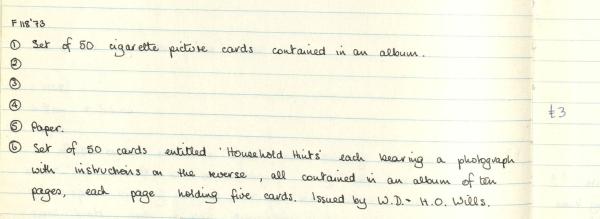 F118'73
① Set of 50 cigarette picture cards contained in an album.
②
③
④
£3
⑤ Paper.
⑥ Set of 50 cards entitled 'Household Hints' each bearing a photograph
with instructions on the reverse, all contained in an album of ten
pages, each page holding five cards. Issued by W.D. - H.O. Wills.